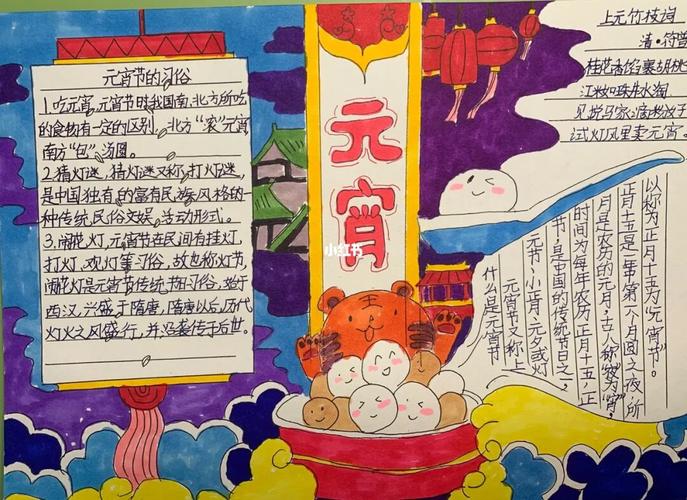 元宵节的习俗
1.吃元宵,元宵节时我国南、北方所吃
的食物有一定的区别。北方“滚”元宵
南方“包”汤圆。
2.猜灯谜,猜灯谜又称打灯谜,
是中国独有的富有民族风格的一
种传统民俗文娱活动形式。
3.闹花灯,元宵节在民间有挂灯、
打灯、观灯等习俗,故也称灯节
闹花灯是元宵节传统节日习俗,始于
西汉,兴盛于隋唐,隋唐以后,历代
灯火之风盛行,并沿袭传于后世。
元宵
小红书
上元竹枝词
清·符曾
桂花香馅裹胡桃
江米如珠井水淘
见说马家滴粉好
试灯风里卖元宵。
什么是元宵节
元宵节又称上
元节、小正月、元夕或灯
节,是中国的传统节日之一,
时间为每年农历正月十五,正
月是农历的元月,古人称“夜”为“宵”
正月十五是一年中第一个月圆之夜,所
以称为正月十五为“元宵节”。